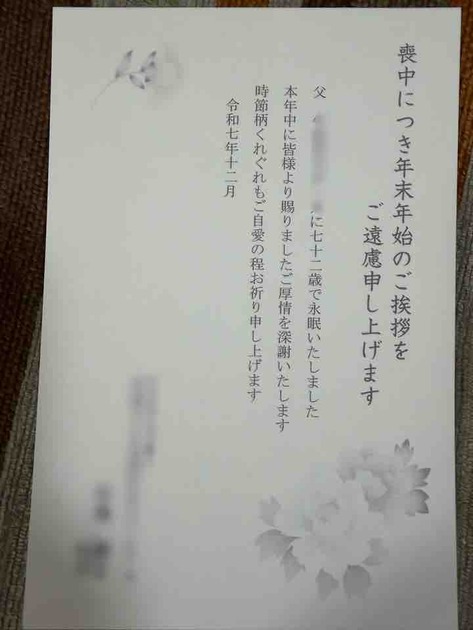 喪中につき年末年始のご挨拶を
ご遠慮申し上げます
父
に七十二歳で永眠いたしました
本年中に皆様より賜りましたご厚情を深謝いたします
時節柄くれぐれもご自愛の程お祈り申し上げます
令和七年十二月